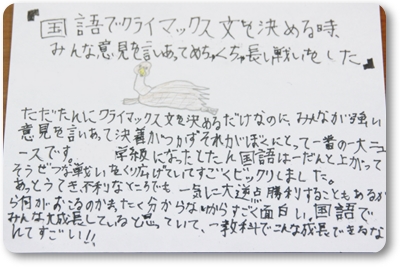 国語でクライマックス文を決める時、
みんな意見を言いあってめちゃくちゃ長い戦いをした
ただたんにクライマックス文を決めるだけなのに、みんなが強い
意見を言いあって決着がつかずそれがぼくにとって一番の大ニュ
ースです。 学級になったとたん国語は一だんと上がって
そうぜつな戦いをくり広げていてすごくビックリしました。
あっとうてき不利なところでも一気に大逆点勝利することもあるか
ら何がおこるのかまったく分からないからすごく面白い。国語で
みんな大成長していると思っていて、一教科でこんな成長できるな
んてすごい!!